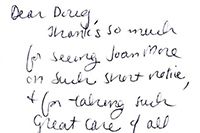 Dear Doug,
Thanks so much
for seeing Joan More
on such short notice,
& for taking such
great care of all